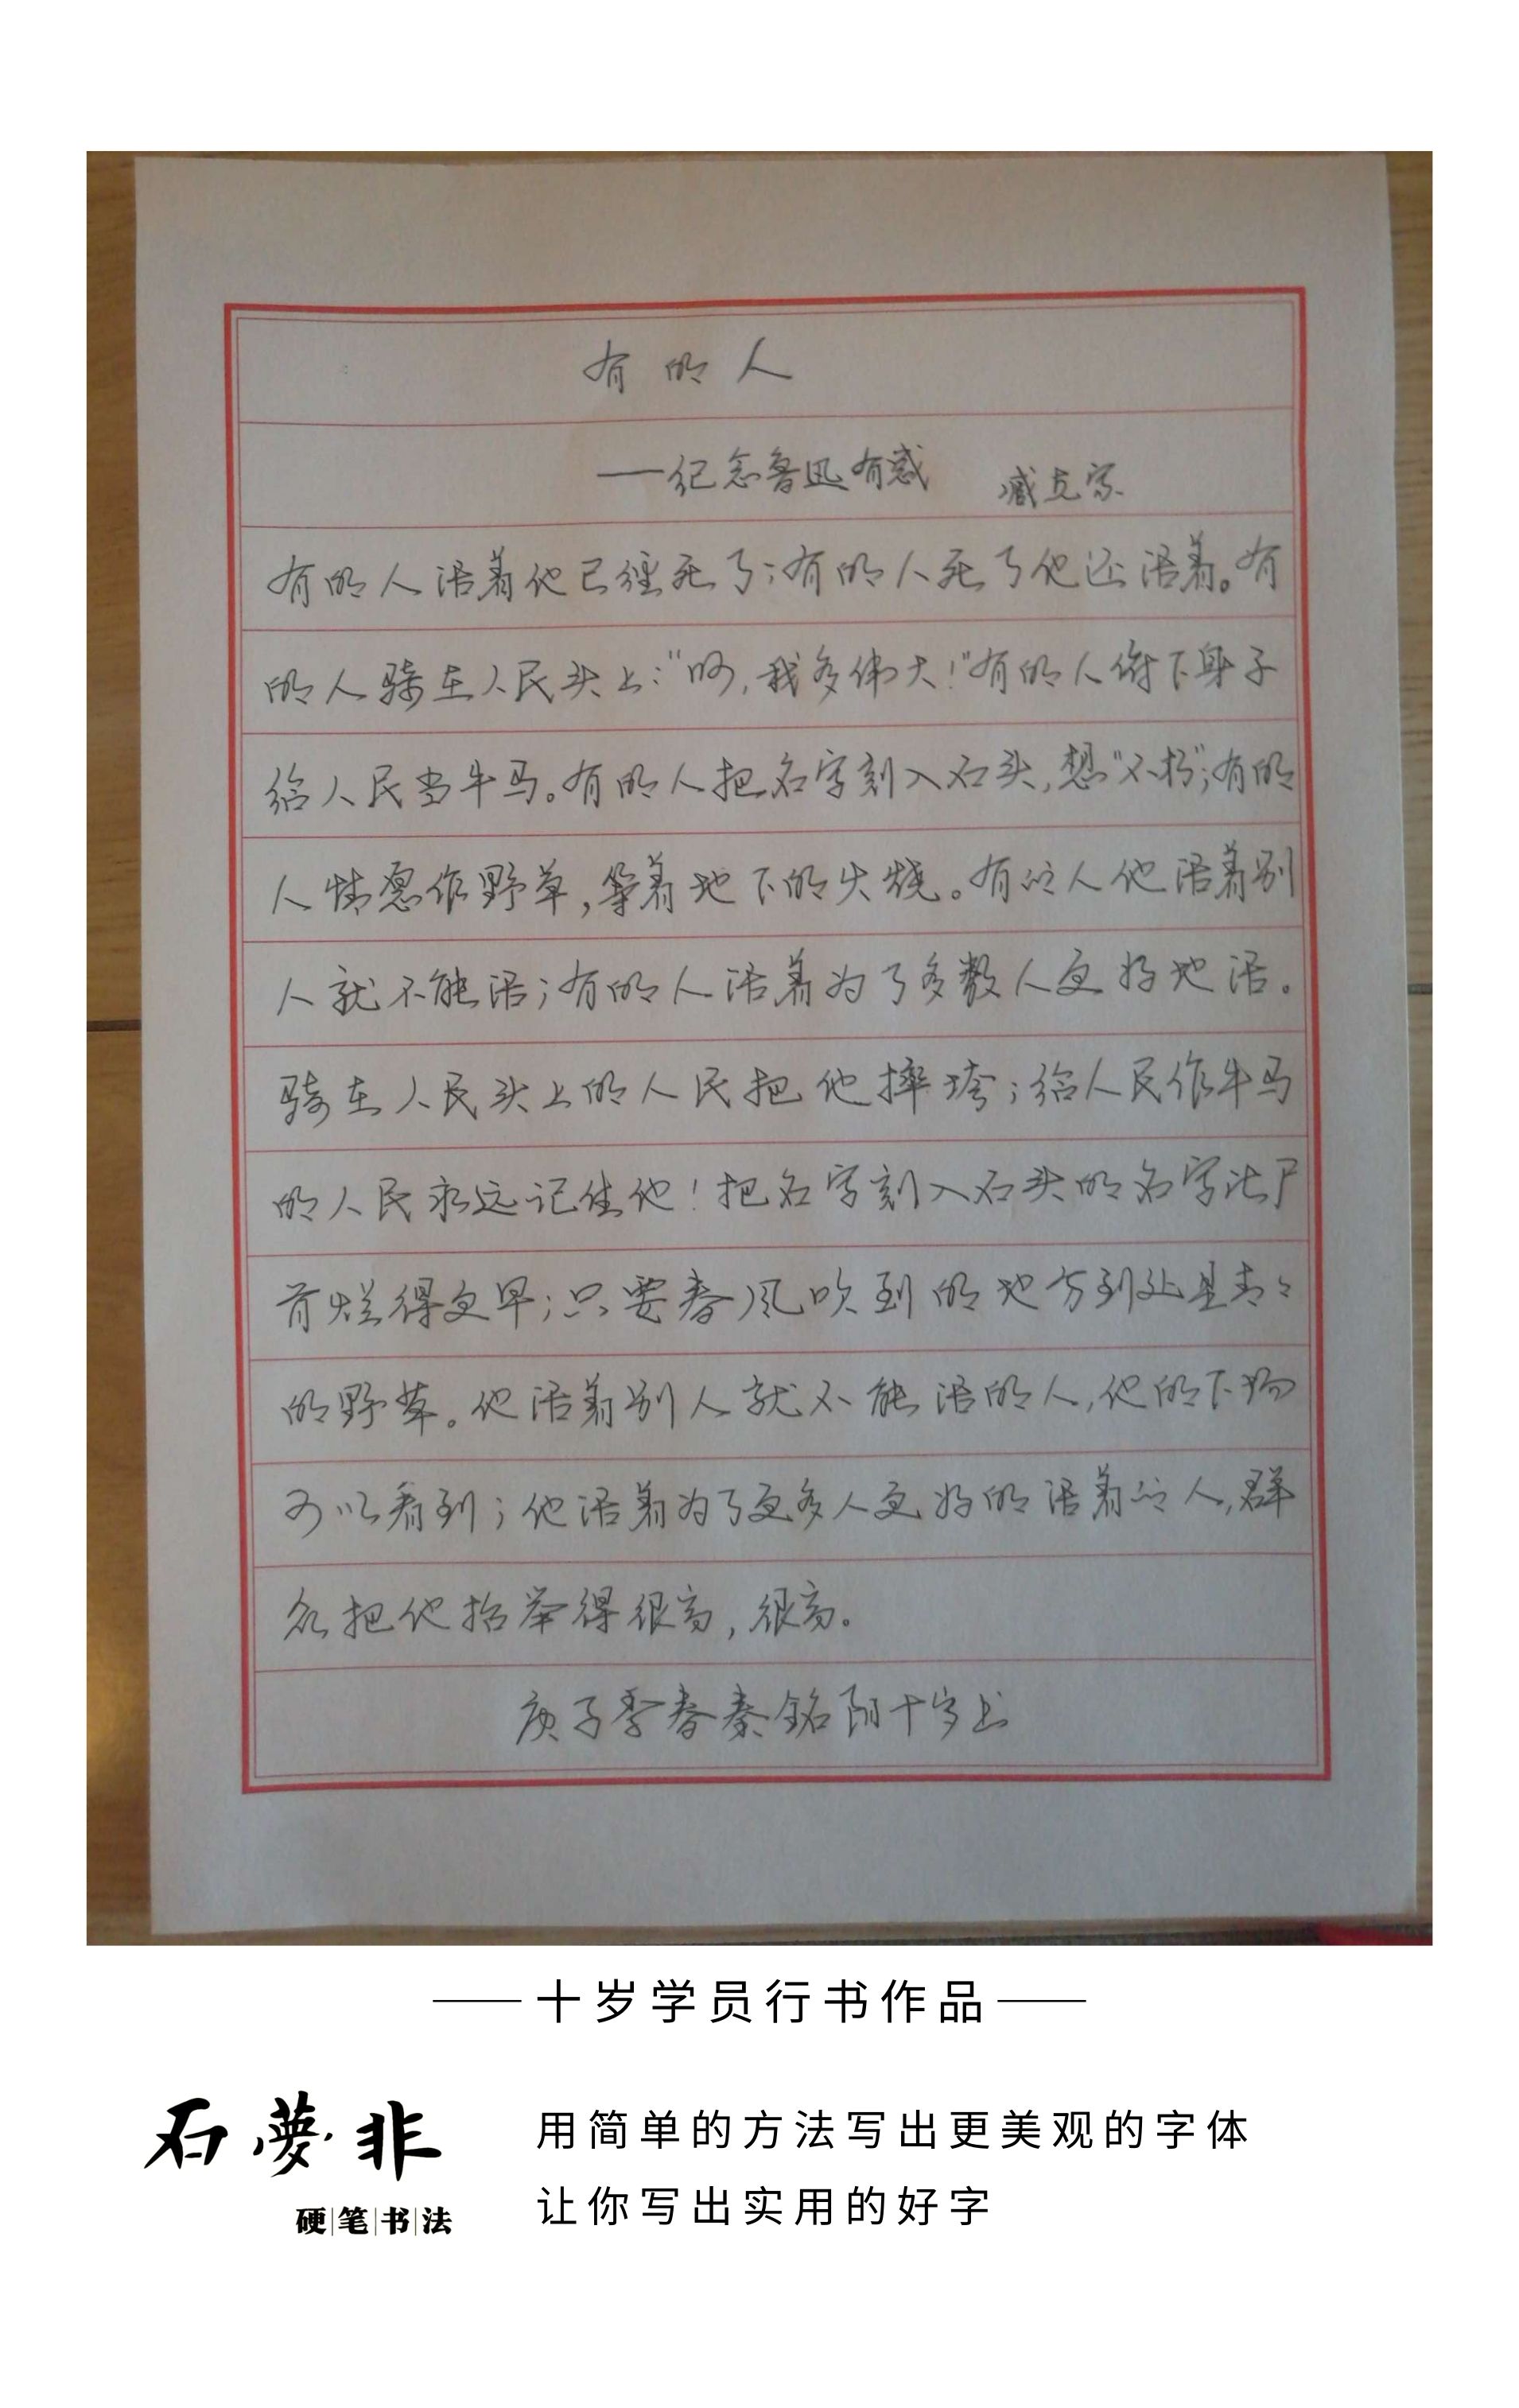 有的人
——纪念鲁迅有感 臧克家
有的人活着他已经死了；有的人死了他还活着。有
的人骑在人民头上："呵，我多伟大！"有的人俯下身子
给人民当牛马。有的人把名字刻入石头，想"不朽"；有的
人情愿作野草，等着地下的火烧。有的人他活着别
人就不能活；有的人活着为了多数人更好地活。
骑在人民头上的人民把他摔垮；给人民作牛马
的人民永远记住他！把名字刻入石头的名字比尸
首烂得更早；只要春风吹到的地方到处是青々
的野草。他活着别人就不能活的人，他的下场
可以看到；他活着为了更多人更好的活着的人，群
众把他抬举得很高，很高。
庚子季春秦铭阳十岁书
——十岁学员行书作品——
石夢非
硬|笔|书|法
用简单的方法写出更美观的字体
让你写出实用的好字